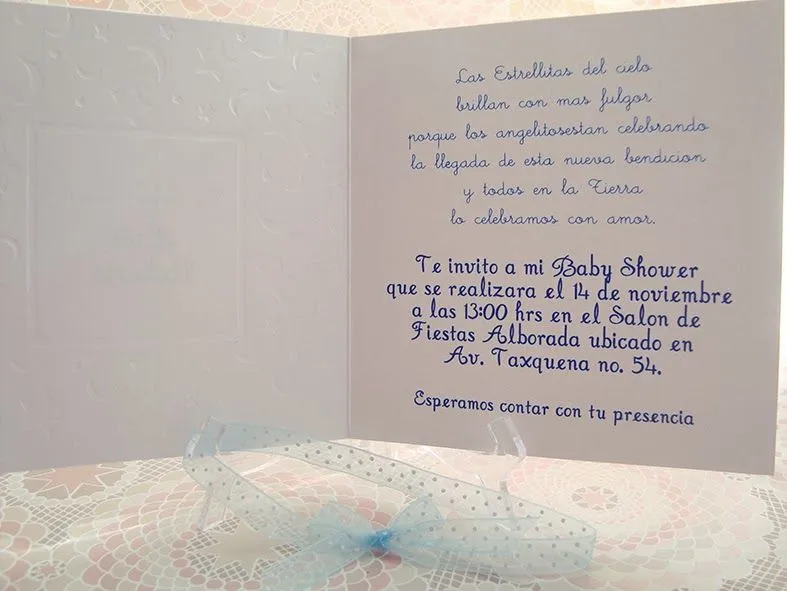 Las Estrellitas del cielo
brillan con mas fulgor
porque los angelitosestan celebrando
la llegada de esta nueva bendicion
y todos en la Tierra
lo celebramos con amor.
Te invito a mi Baby Shower
que se realizara el 14 de noviembre
a las 13:00 hrs en el Salon de
Fiestas Alborada ubicado en
Av. Taxquena no. 54.
Esperamos contar con tu presencia